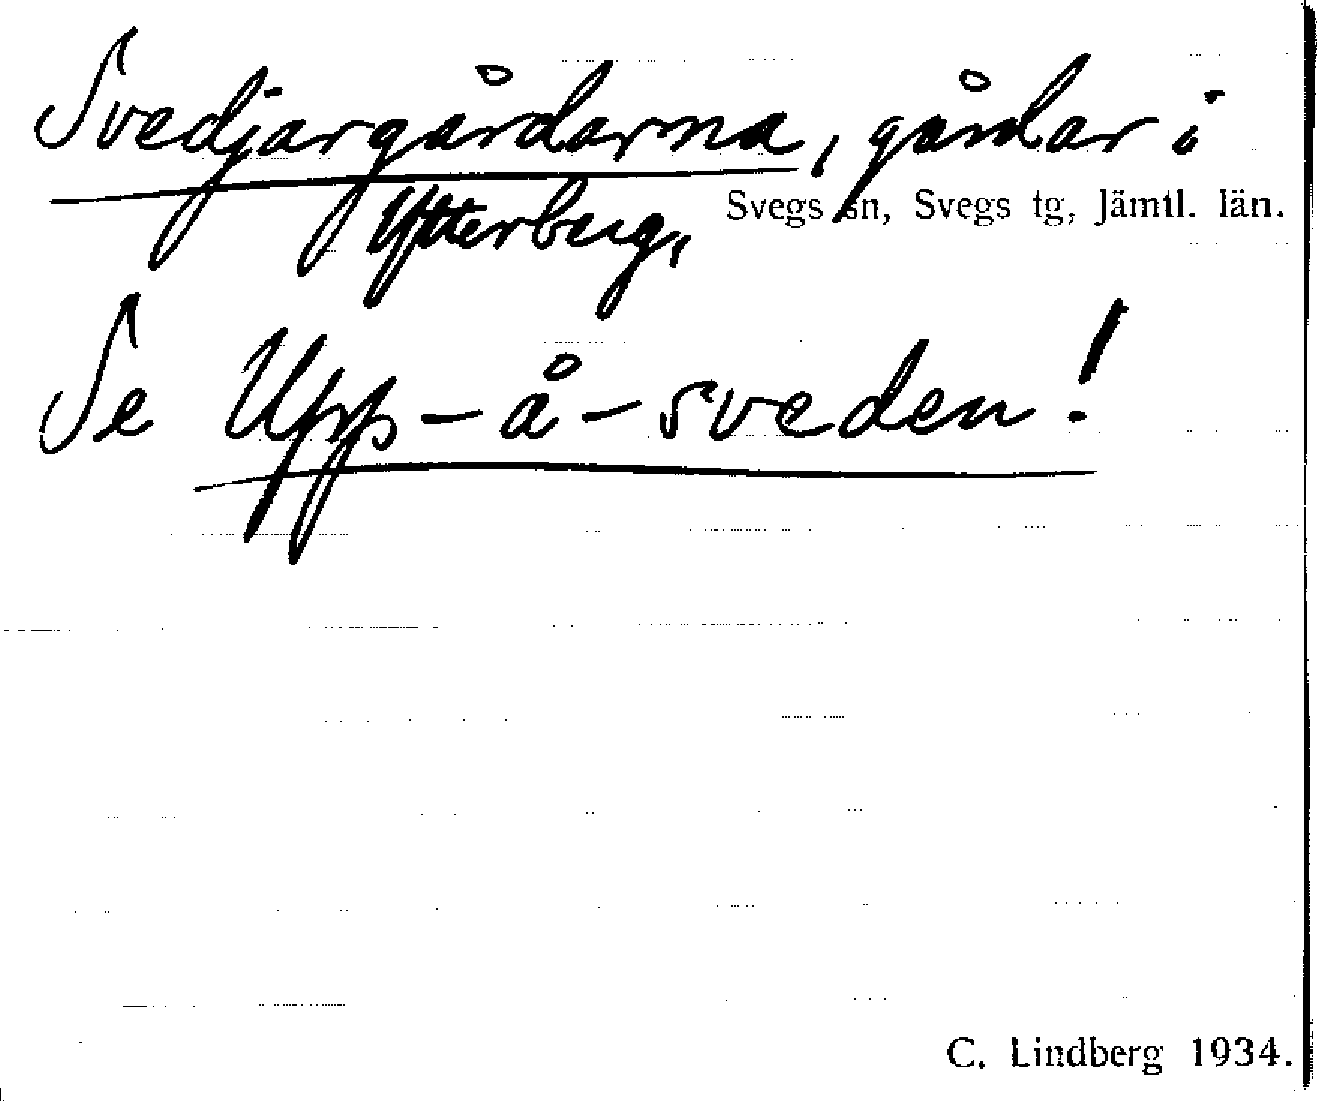 Svedjargårdarna, gårdar i
Ytterberg, Svegs sn, Svegs tg, Jämtl. län.
Se Upp-å-sveden!
C. Lindberg 1934.